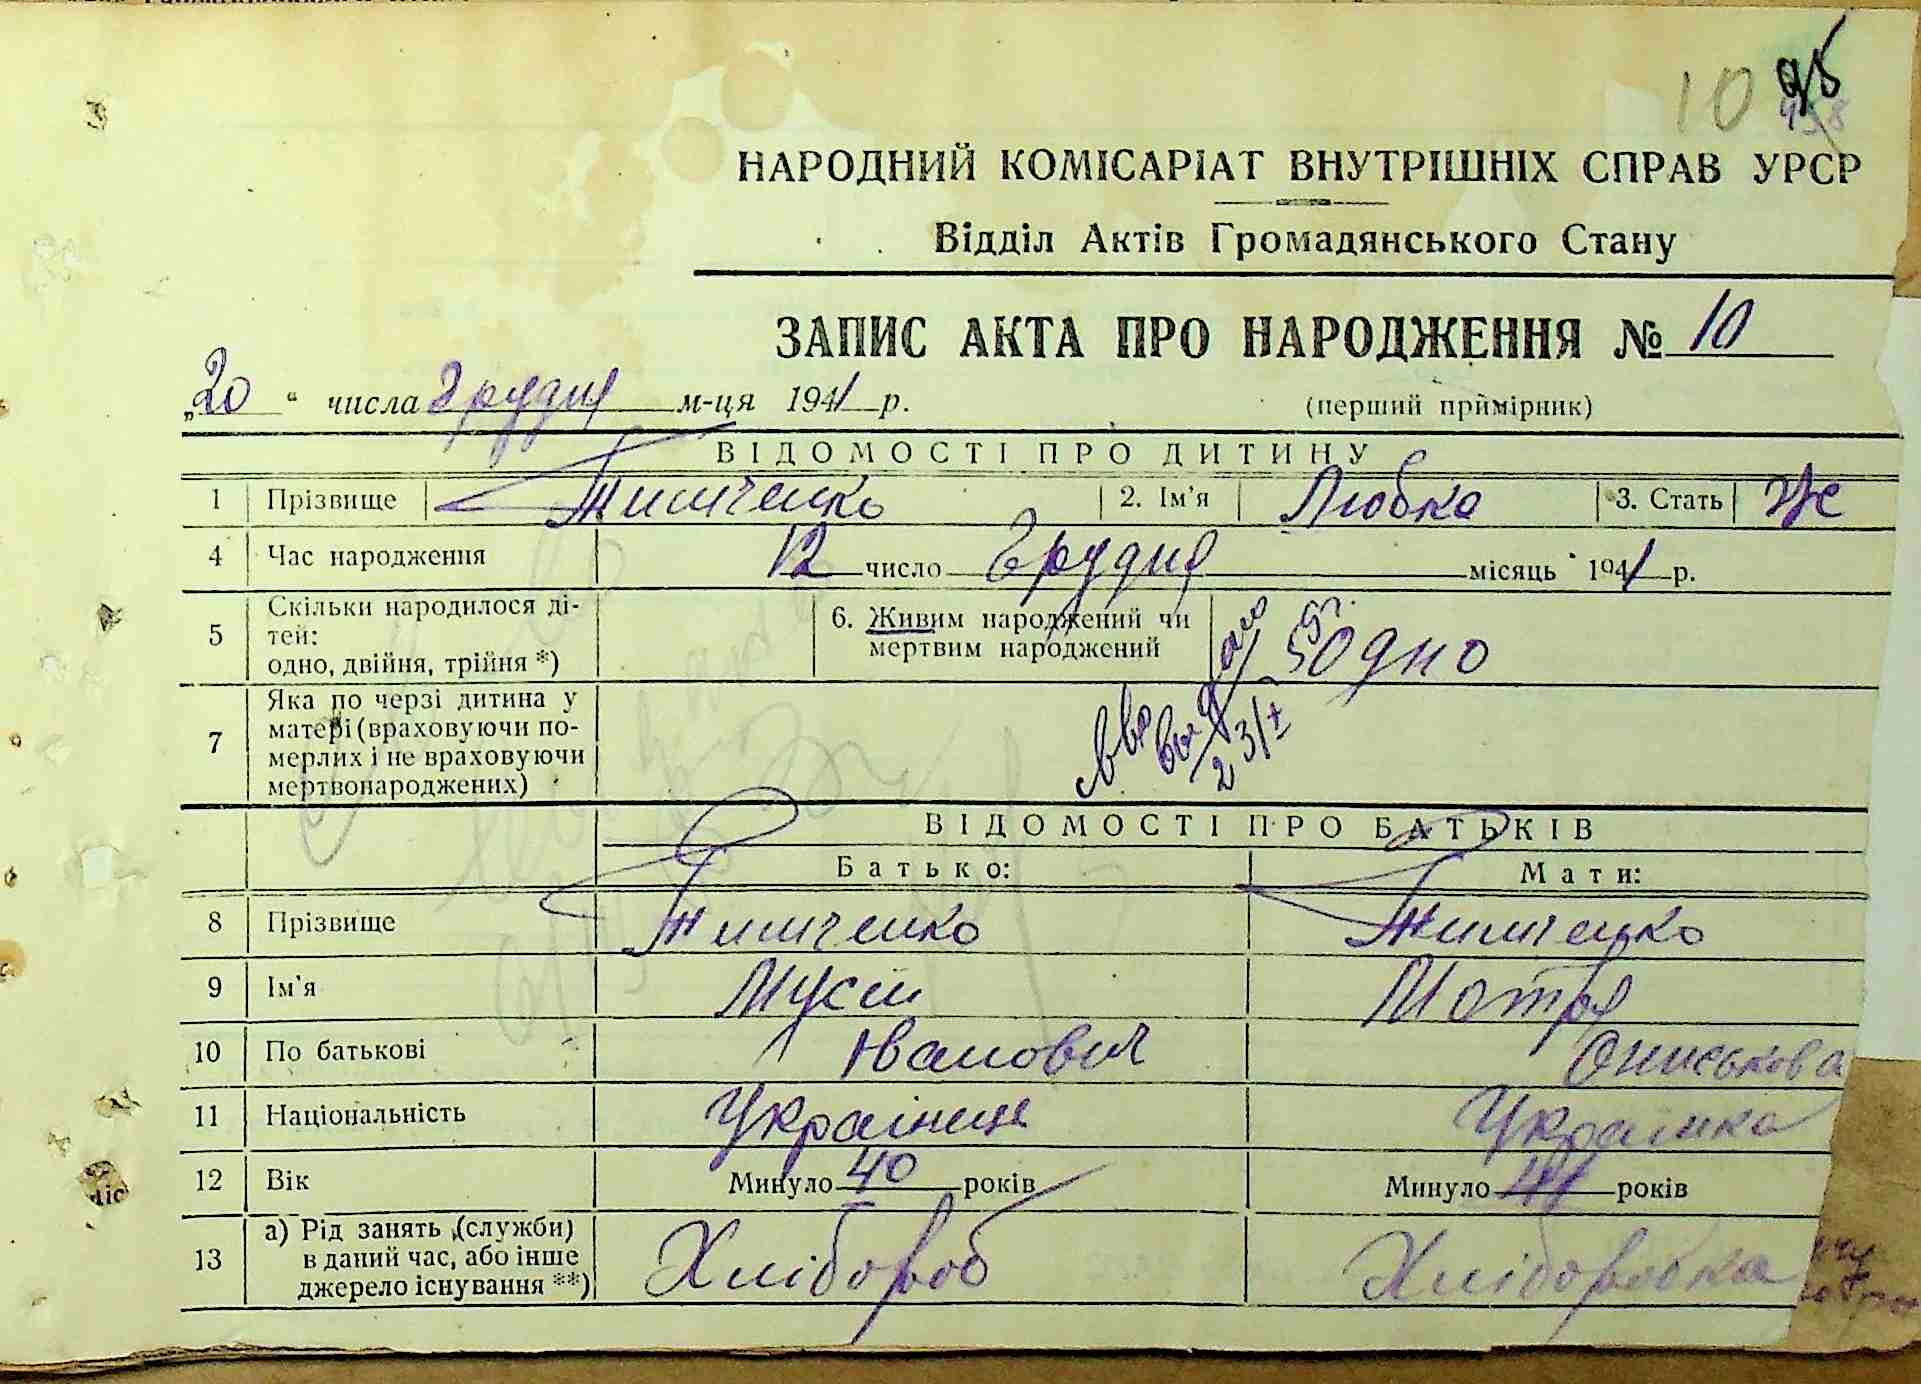 10 95
НАРОДНИЙ КОМІСАРІАТ ВНУТРІШНІХ СПРАВ УРСР
Відділ Актів Громадянського Стану
ЗАПИС АКТА ПРО НАРОДЖЕННЯ № 10
„20“ числа Грудня м-ця 1941 р. (перший примірник)
ВІДОМОСТІ ПРО ДИТИНУ
1 Прізвище Тимченко 2. Ім'я Любка 3. Стать Ж
4 Час народження 12 число Грудня місяць 1941 р.
5 Скільки народилося ді-
тей:
одно, двійня, трійня *)
6. Живим народжений чи
мертвим народжений
Одно
7 Яка по черзі дитина у
матері (враховуючи по-
мерлих і не враховуючи
мертвонароджених)
23/X
ВІДОМОСТІ ПРО БАТЬКІВ
Батько: Мати:
8 Прізвище Тимченко Тимченко
9 Ім'я Мусій Мотря
10 По батькові Іванович Ониськова
11 Національність Українець Українка
12 Вік Минуло 40 років Минуло 41 років
13 а) Рід занять (служби)
в даний час, або інше
джерело існування **)
Хлібороб Хліборобка